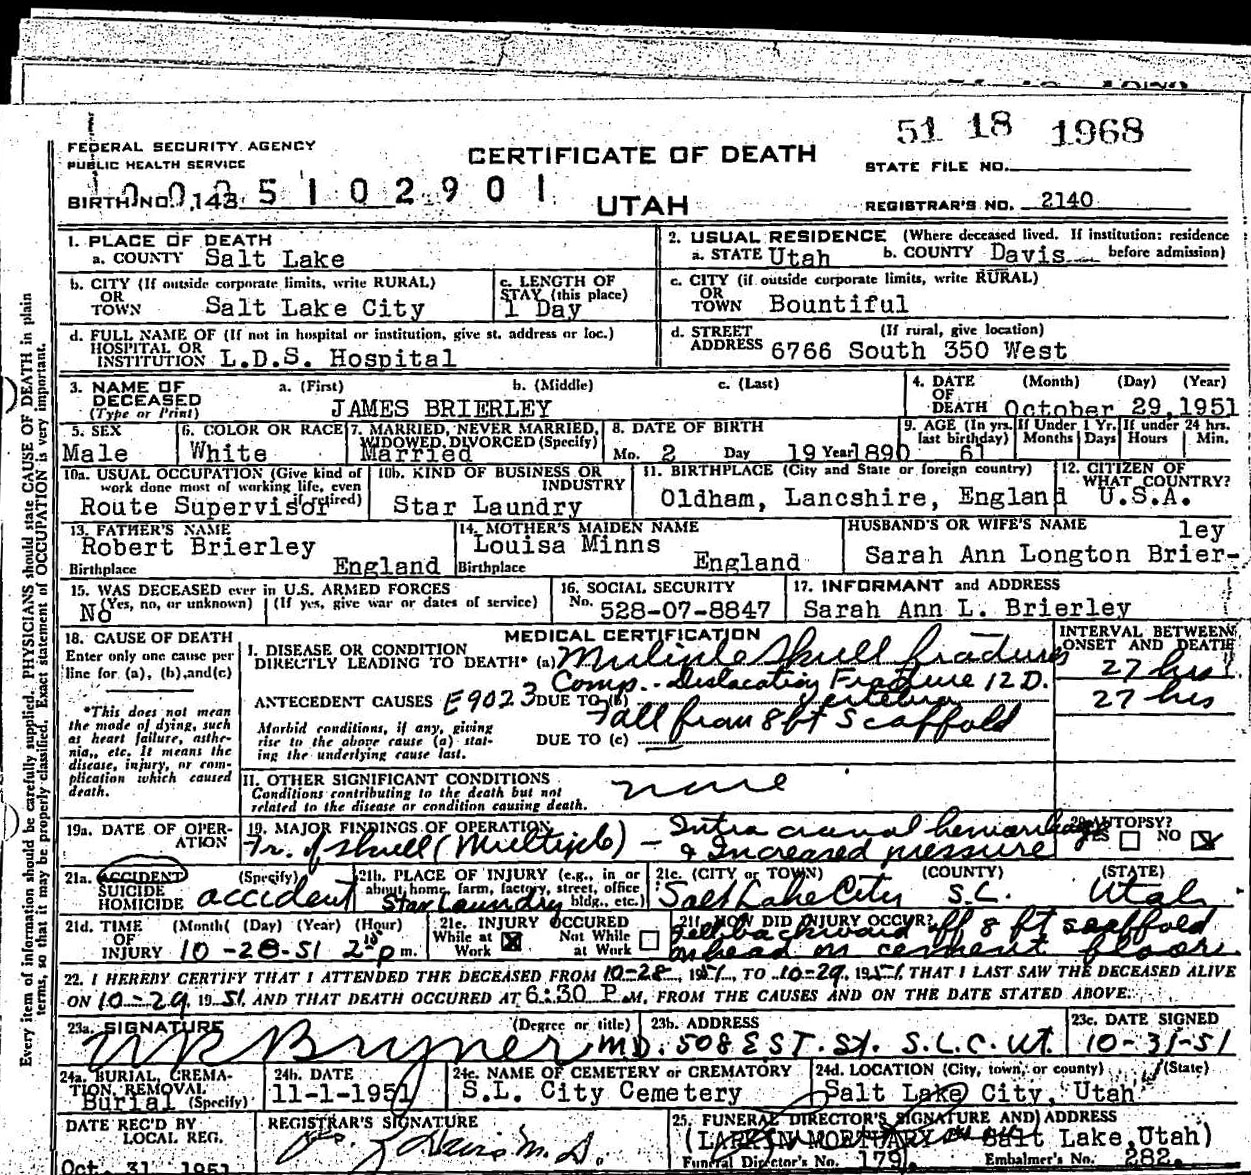 51 18 1968
FEDERAL SECURITY AGENCY
PUBLIC HEALTH SERVICE
CERTIFICATE OF DEATH
STATE FILE NO.
BIRTH NO. 143 5 1 0 2 9 0 1
UTAH
REGISTRAR'S NO. 2140
Every item of information should be carefully supplied. PHYSICIANS should state CAUSE OF DEATH in plain
terms, so that it may be properly classified. Exact statement of OCCUPATION is very important.
1. PLACE OF DEATH
a. COUNTY Salt Lake
2. USUAL RESIDENCE (Where deceased lived. If institution: residence
a. STATE Utah b. COUNTY Davis before admission)
b. CITY (If outside corporate limits, write RURAL)
OR
TOWN Salt Lake City
c. LENGTH OF
STAY (this place)
1 Day
c. CITY (if outside corporate limits, write RURAL)
OR
TOWN Bountiful
d. FULL NAME OF (If not in hospital or institution, give st. address or loc.)
HOSPITAL OR
INSTITUTION L.D.S. Hospital
d. STREET (If rural, give location)
ADDRESS 6766 South 350 West
3. NAME OF DECEASED a. (First) b. (Middle) c. (Last)
(Type or Print) JAMES BRIERLEY
4. DATE (Month) (Day) (Year)
OF
DEATH October 29, 1951
5. SEX
Male
6. COLOR OR RACE
White
7. MARRIED, NEVER MARRIED,
WIDOWED, DIVORCED (Specify)
Married
8. DATE OF BIRTH
Mo. 2 Day 19 Year 1890
9. AGE (In yrs. last birthday) 61
If Under 1 Yr. Months Days
If under 24 hrs. Hours Min.
10a. USUAL OCCUPATION (Give kind of
work done most of working life, even
if retired)
Route Supervisor
10b. KIND OF BUSINESS OR
INDUSTRY
Star Laundry
11. BIRTHPLACE (City and State or foreign country)
Oldham, Lancshire, England
12. CITIZEN OF
WHAT COUNTRY?
U.S.A.
13. FATHER'S NAME
Robert Brierley
Birthplace England
14. MOTHER'S MAIDEN NAME
Louisa Minns
Birthplace England
HUSBAND'S OR WIFE'S NAME ley
Sarah Ann Longton Brier-
15. WAS DECEASED ever in U.S. ARMED FORCES
(Yes, no, or unknown) (If yes, give war or dates of service)
No
16. SOCIAL SECURITY
No. 528-07-8847
17. INFORMANT and ADDRESS
Sarah Ann L. Brierley
18. CAUSE OF DEATH
Enter only one cause per
line for (a), (b), and (c)
*This does not mean
the mode of dying, such
as heart failure, asthe-
nia, etc. It means the
disease, injury, or com-
plication which caused
death.
MEDICAL CERTIFICATION
INTERVAL BETWEEN
ONSET AND DEATH
I. DISEASE OR CONDITION
DIRECTLY LEADING TO DEATH* (a) Multiple Skull fractures 27 hrs
Comp. - Dislocation Fracture 12 D.
ANTECEDENT CAUSES E9023 DUE TO (b) vertebra 27 hrs
Morbid conditions, if any, giving
rise to the above cause (a) stat-
ing the underlying cause last.
DUE TO (c) Fall from 8 ft Scaffold
II. OTHER SIGNIFICANT CONDITIONS
Conditions contributing to the death but not
related to the disease or condition causing death.
none
19a. DATE OF OPER-
ATION
19. MAJOR FINDINGS OF OPERATION
Fr. of skull (Multiple) - Intra cranial hemorrhage
& Increased pressure
20. AUTOPSY?
YES NO
21a. ACCIDENT (Specify)
SUICIDE
HOMICIDE accident
21b. PLACE OF INJURY (e.g., in or
about home, farm, factory, street, office
bldg., etc.)
Star Laundry
21c. (CITY or TOWN) (COUNTY) (STATE)
Salt Lake City S.L. Utah
21d. TIME (Month) (Day) (Year) (Hour)
OF
INJURY 10-28-51 p m.
21e. INJURY OCCURED
While at Work Not While at Work
21f. HOW DID INJURY OCCUR?
Fell backward off 8 ft scaffold
on head on cement floor
22. I HEREBY CERTIFY THAT I ATTENDED THE DECEASED FROM 10-28, 1951, TO 10-29, 1951, THAT I LAST SAW THE DECEASED ALIVE
ON 10-29 1951, AND THAT DEATH OCCURED AT 6:30 P.M., FROM THE CAUSES AND ON THE DATE STATED ABOVE.
23a. SIGNATURE (Degree or title)
Bryner M.D.
23b. ADDRESS
508 E. S.T. St. S.L.C. Ut.
23c. DATE SIGNED
10-31-51
24a. BURIAL, CREMA-
TION, REMOVAL
Burial (Specify)
24b. DATE
11-1-1951
24c. NAME OF CEMETERY or CREMATORY
S.L. City Cemetery
24d. LOCATION (City, town, or county) (State)
Salt Lake City, Utah
DATE REC'D BY
LOCAL REG.
Oct. 31 1951
REGISTRAR'S SIGNATURE
M.D.
25. FUNERAL DIRECTOR'S SIGNATURE AND ADDRESS
(LARKIN MORTUARY Salt Lake, Utah)
Funeral Director's No. 179 Embalmer's No. 282.